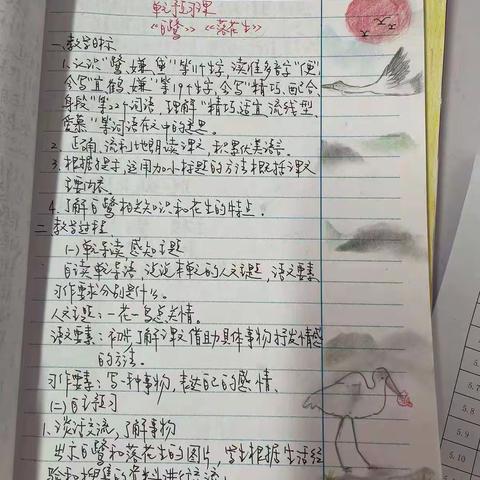 单元预习课
《白鹭》《落花生》
一、教学目标
1、认识“鹭、嫌、单”等11个生字,读准多音字“便”,
会写“宜、鹤、嫌”等19个生字,会写“精巧、配合、
身段”等22个词语,理解“精巧、适宜、流线型、
爱慕”等词语在文中的意思。
2、正确、流利地朗读课文,积累优美语言。
3、根据提示,运用加小标题的方法概括课文
主要内容。
4、了解白鹭相关知识和花生的特点。
二、教学过程
(一)单元导读,感知主题
自读单元导语,说说本单元的人文主题,语文要素,
习作要求分别是什么。
人文主题:一花一鸟总关情。
语文要素:初步了解课文借助具体事物抒发情感
的方法。
习作要素:写一种事物,表达自己的感情。
(二)自主预习
1、谈话交流,了解事物
出示白鹭和落花生的图片,学生根据生活经
验和搜集的资料进行交流。
5.7
5.8
5.9
5.10